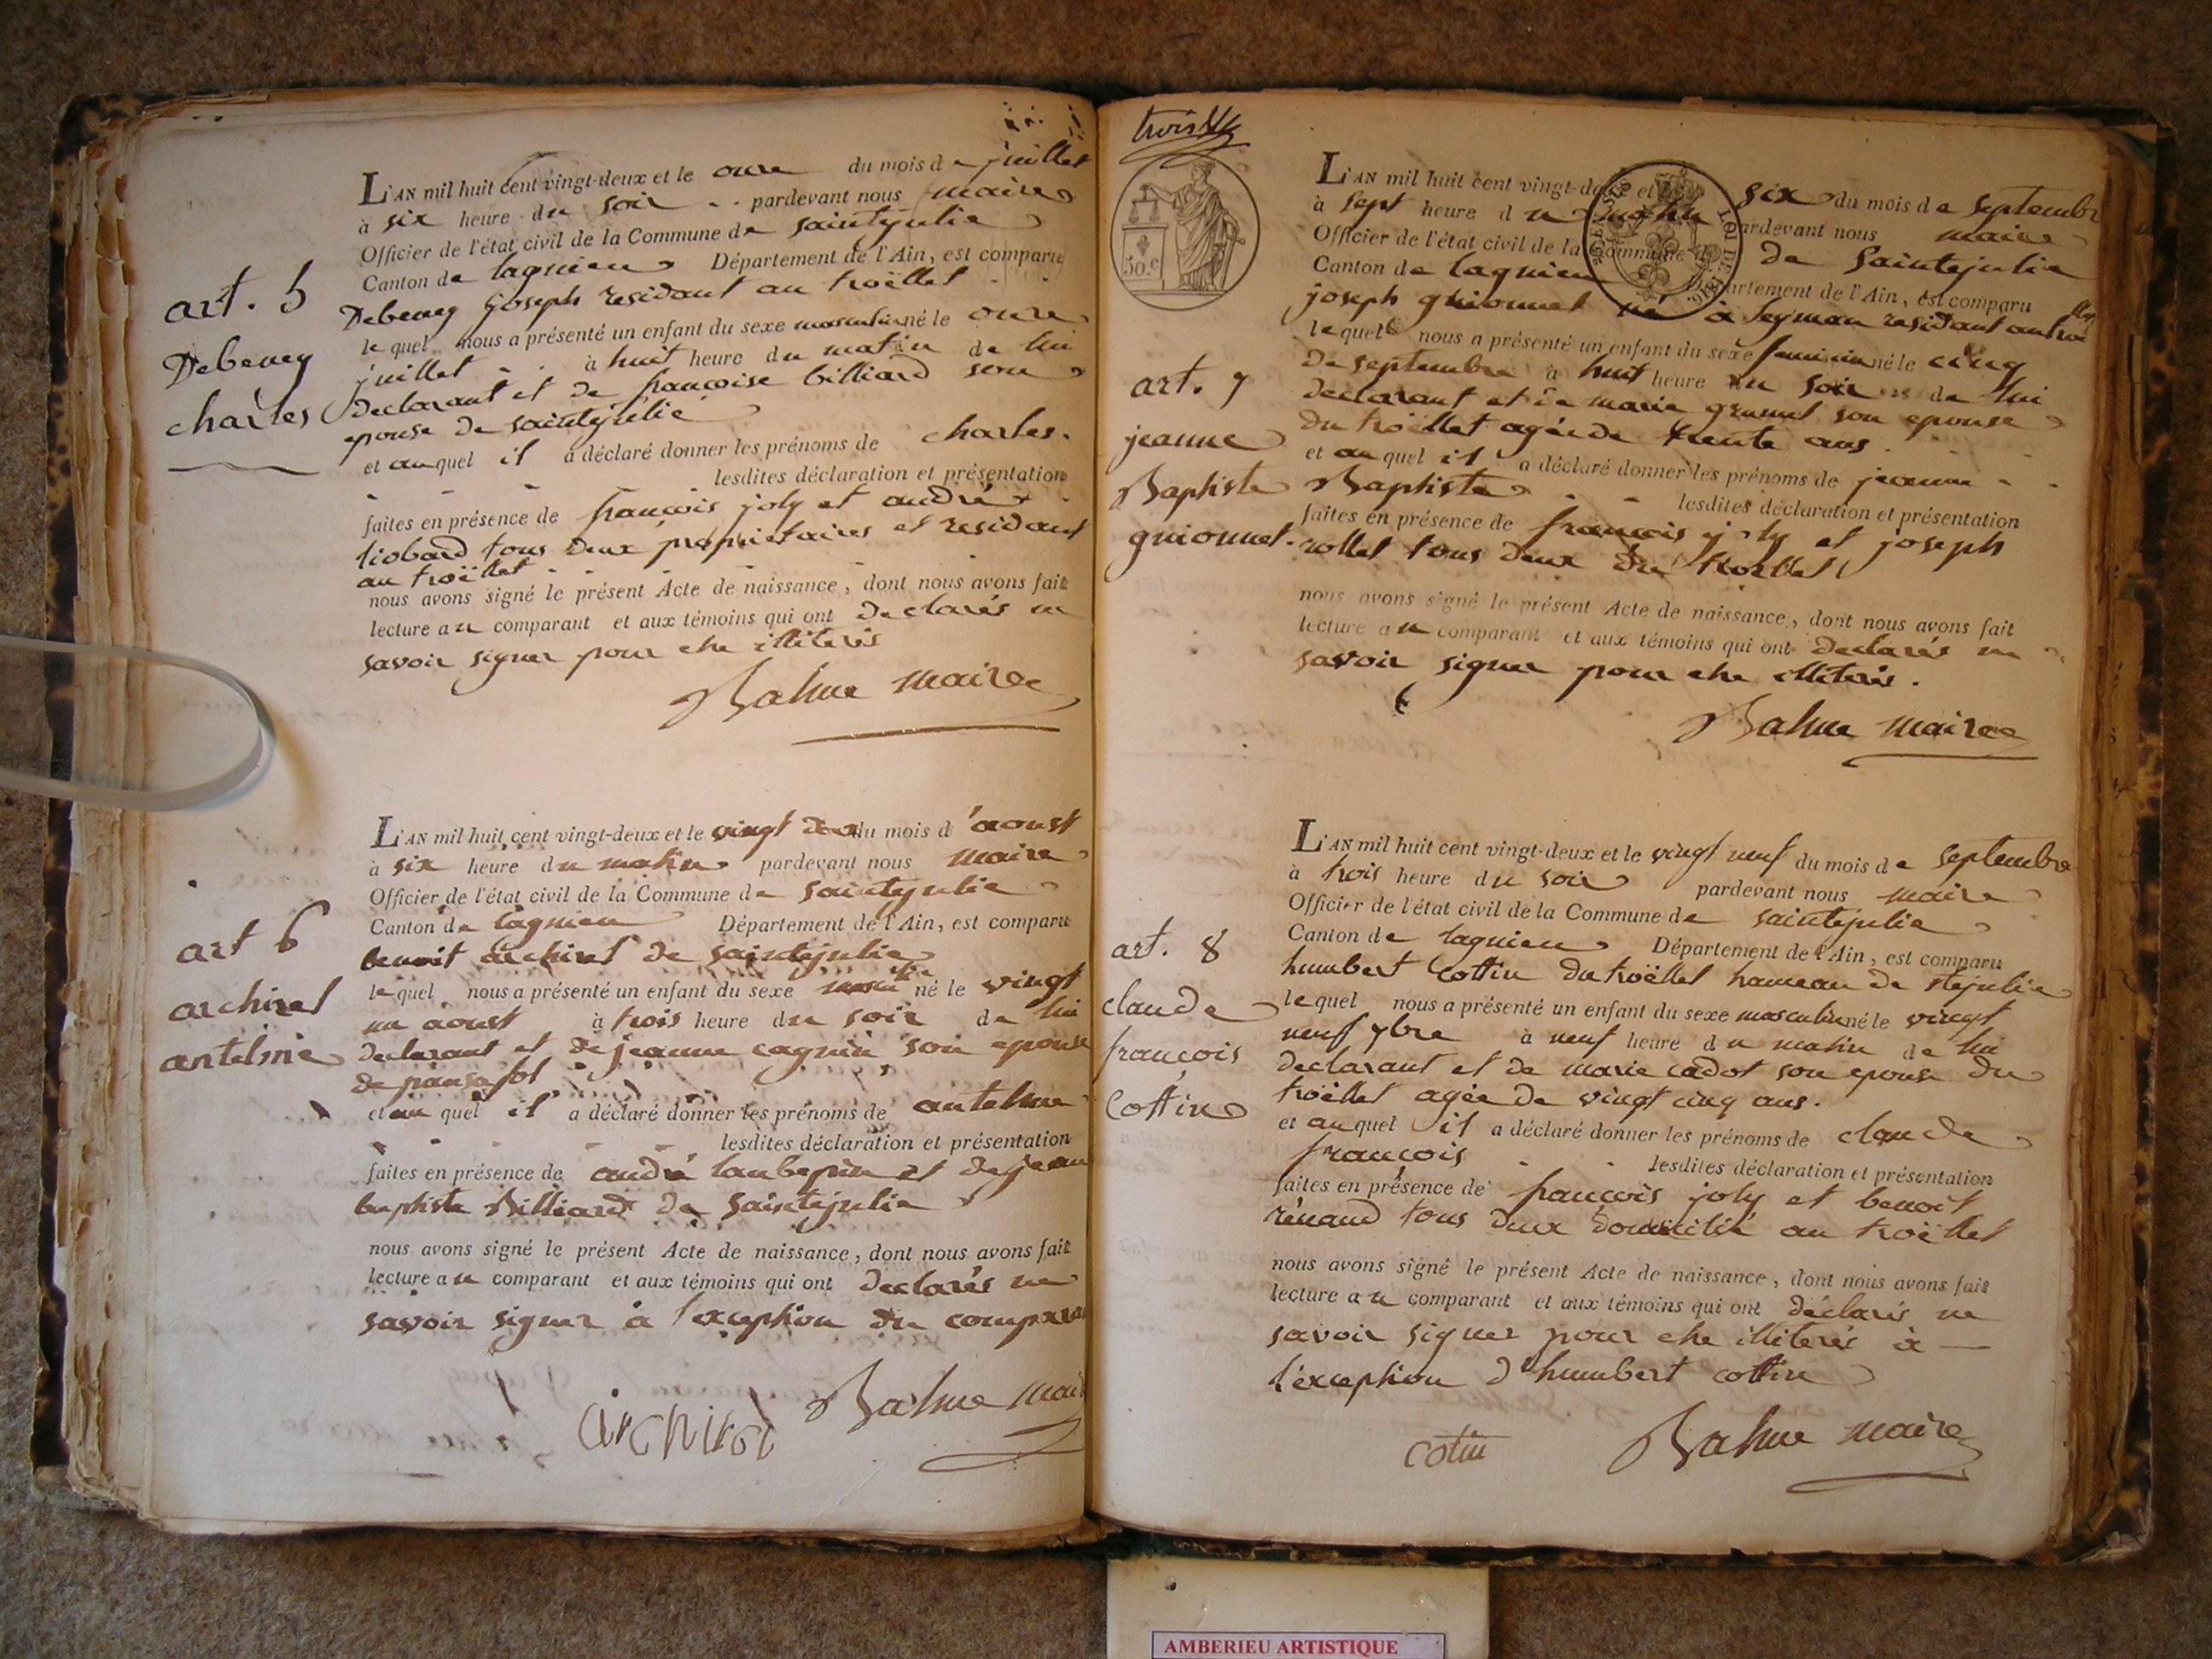 L'AN mil huit cent vingt-deux et le onze du mois de juillet
à six heure du soir pardevant nous maire
Officier de l'état civil de la Commune de saintejulie
Canton de lagnieu Département de l'Ain, est comparu
Debeney joseph residant au troëllet
lequel nous a présenté un enfant du sexe masculin né le onze
juillet à huit heure du matin de lui
declarant et de françoise billiard son
epouse de saintejulie
et auquel il a déclaré donner les prénoms de charles.
lesdites déclaration et présentation
faites en présence de françois joly et andré
liobard tous deux proprietaires et residant
au troëllet
nous avons signé le présent Acte de naissance, dont nous avons fait
lecture au comparant et aux témoins qui ont declarés ne
savoir signer pour etre illiterés
Balme maire
art. 5
Debeney
charles
L'AN mil huit cent vingt-deux et le vingt deux du mois d'aoust
à six heure du matin pardevant nous maire
Officier de l'état civil de la Commune de saintejulie
Canton de lagnieu Département de l'Ain, est comparu
benoit archirel de saintejulie
lequel nous a présenté un enfant du sexe né le vingt
un aoust à trois heure du soir de lui
declarant et de jeanne cagnin son epouse
de pansafol
et auquel il a déclaré donner les prénoms de antelme
lesdites déclaration et présentation
faites en présence de andré laubepin et de jean
baptiste Billiard de saintejulie
nous avons signé le présent Acte de naissance, dont nous avons fait
lecture au comparant et aux témoins qui ont declarés ne
savoir signer à l'exception du comparant
archirel Balme mair
art 6
archirel
antelme
trois
50.c
L'AN mil huit cent vingt-deux et le six du mois de septembr
à sept heure du matin pardevant nous maire
Officier de l'état civil de la Commune de de saintejulie
Canton de lagnieu Département de l'Ain, est comparu
joseph guionnet né à leyman residant au troëllet
lequel nous a présenté un enfant du sexe feminin né le cinq
de septembre à huit heure du soir de lui
declarant et de marie grumet son epouse
du troëllet agée de trente ans.
et auquel il a déclaré donner les prénoms de jeanne
Baptiste lesdites déclaration et présentation
faites en présence de françois joly et joseph
rollet tous deux du troëllet
nous avons signé le présent Acte de naissance, dont nous avons fait
lecture au comparant et aux témoins qui ont declarés ne
savoir signer pour etre illiterés.
Balme maire
art. 7
jeanne
Baptiste
guionnet.
L'AN mil huit cent vingt-deux et le vingt neuf du mois de septembre
à trois heure du soir pardevant nous maire
Officier de l'état civil de la Commune de saintejulie
Canton de lagnieu Département de l'Ain, est comparu
humbert cottin du troëllet hameau de stejulie
lequel nous a présenté un enfant du sexe masculin né le vingt
neuf 7bre à neuf heure du matin de lui
declarant et de marie cadot son epouse du
troëllet agée de vingt cinq ans.
et auquel il a déclaré donner les prénoms de claude
françois lesdites déclaration et présentation
faites en présence de françois joly et benoit
rénaud tous deux domicilié au troëllet
nous avons signé le présent Acte de naissance, dont nous avons fait
lecture au comparant et aux témoins qui ont déclarés ne
savoir signer pour etre illiterés à
l'exception d'humbert cottin
cotin Balme maire
art. 8
claude
françois
Cottin
AMBERIEU ARTISTIQUE